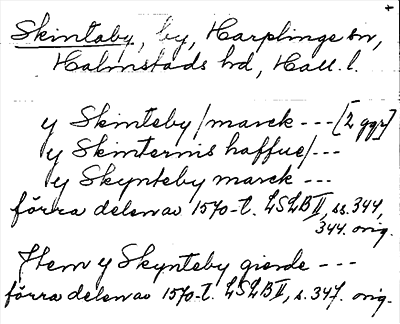 Skintaby, by, Harplinge sn,
Halmstads hd, Hall. l.
y Skinteby /marck --- [2 ggr]
y Skinternis haffue/---
y Skynteby marck ---
förra delen av 1570-t. LSLB II, ss. 344,
344. orig.
Item y Skynteby gierde ---
förra delen av 1570-t. LSLB II, s. 347. orig.